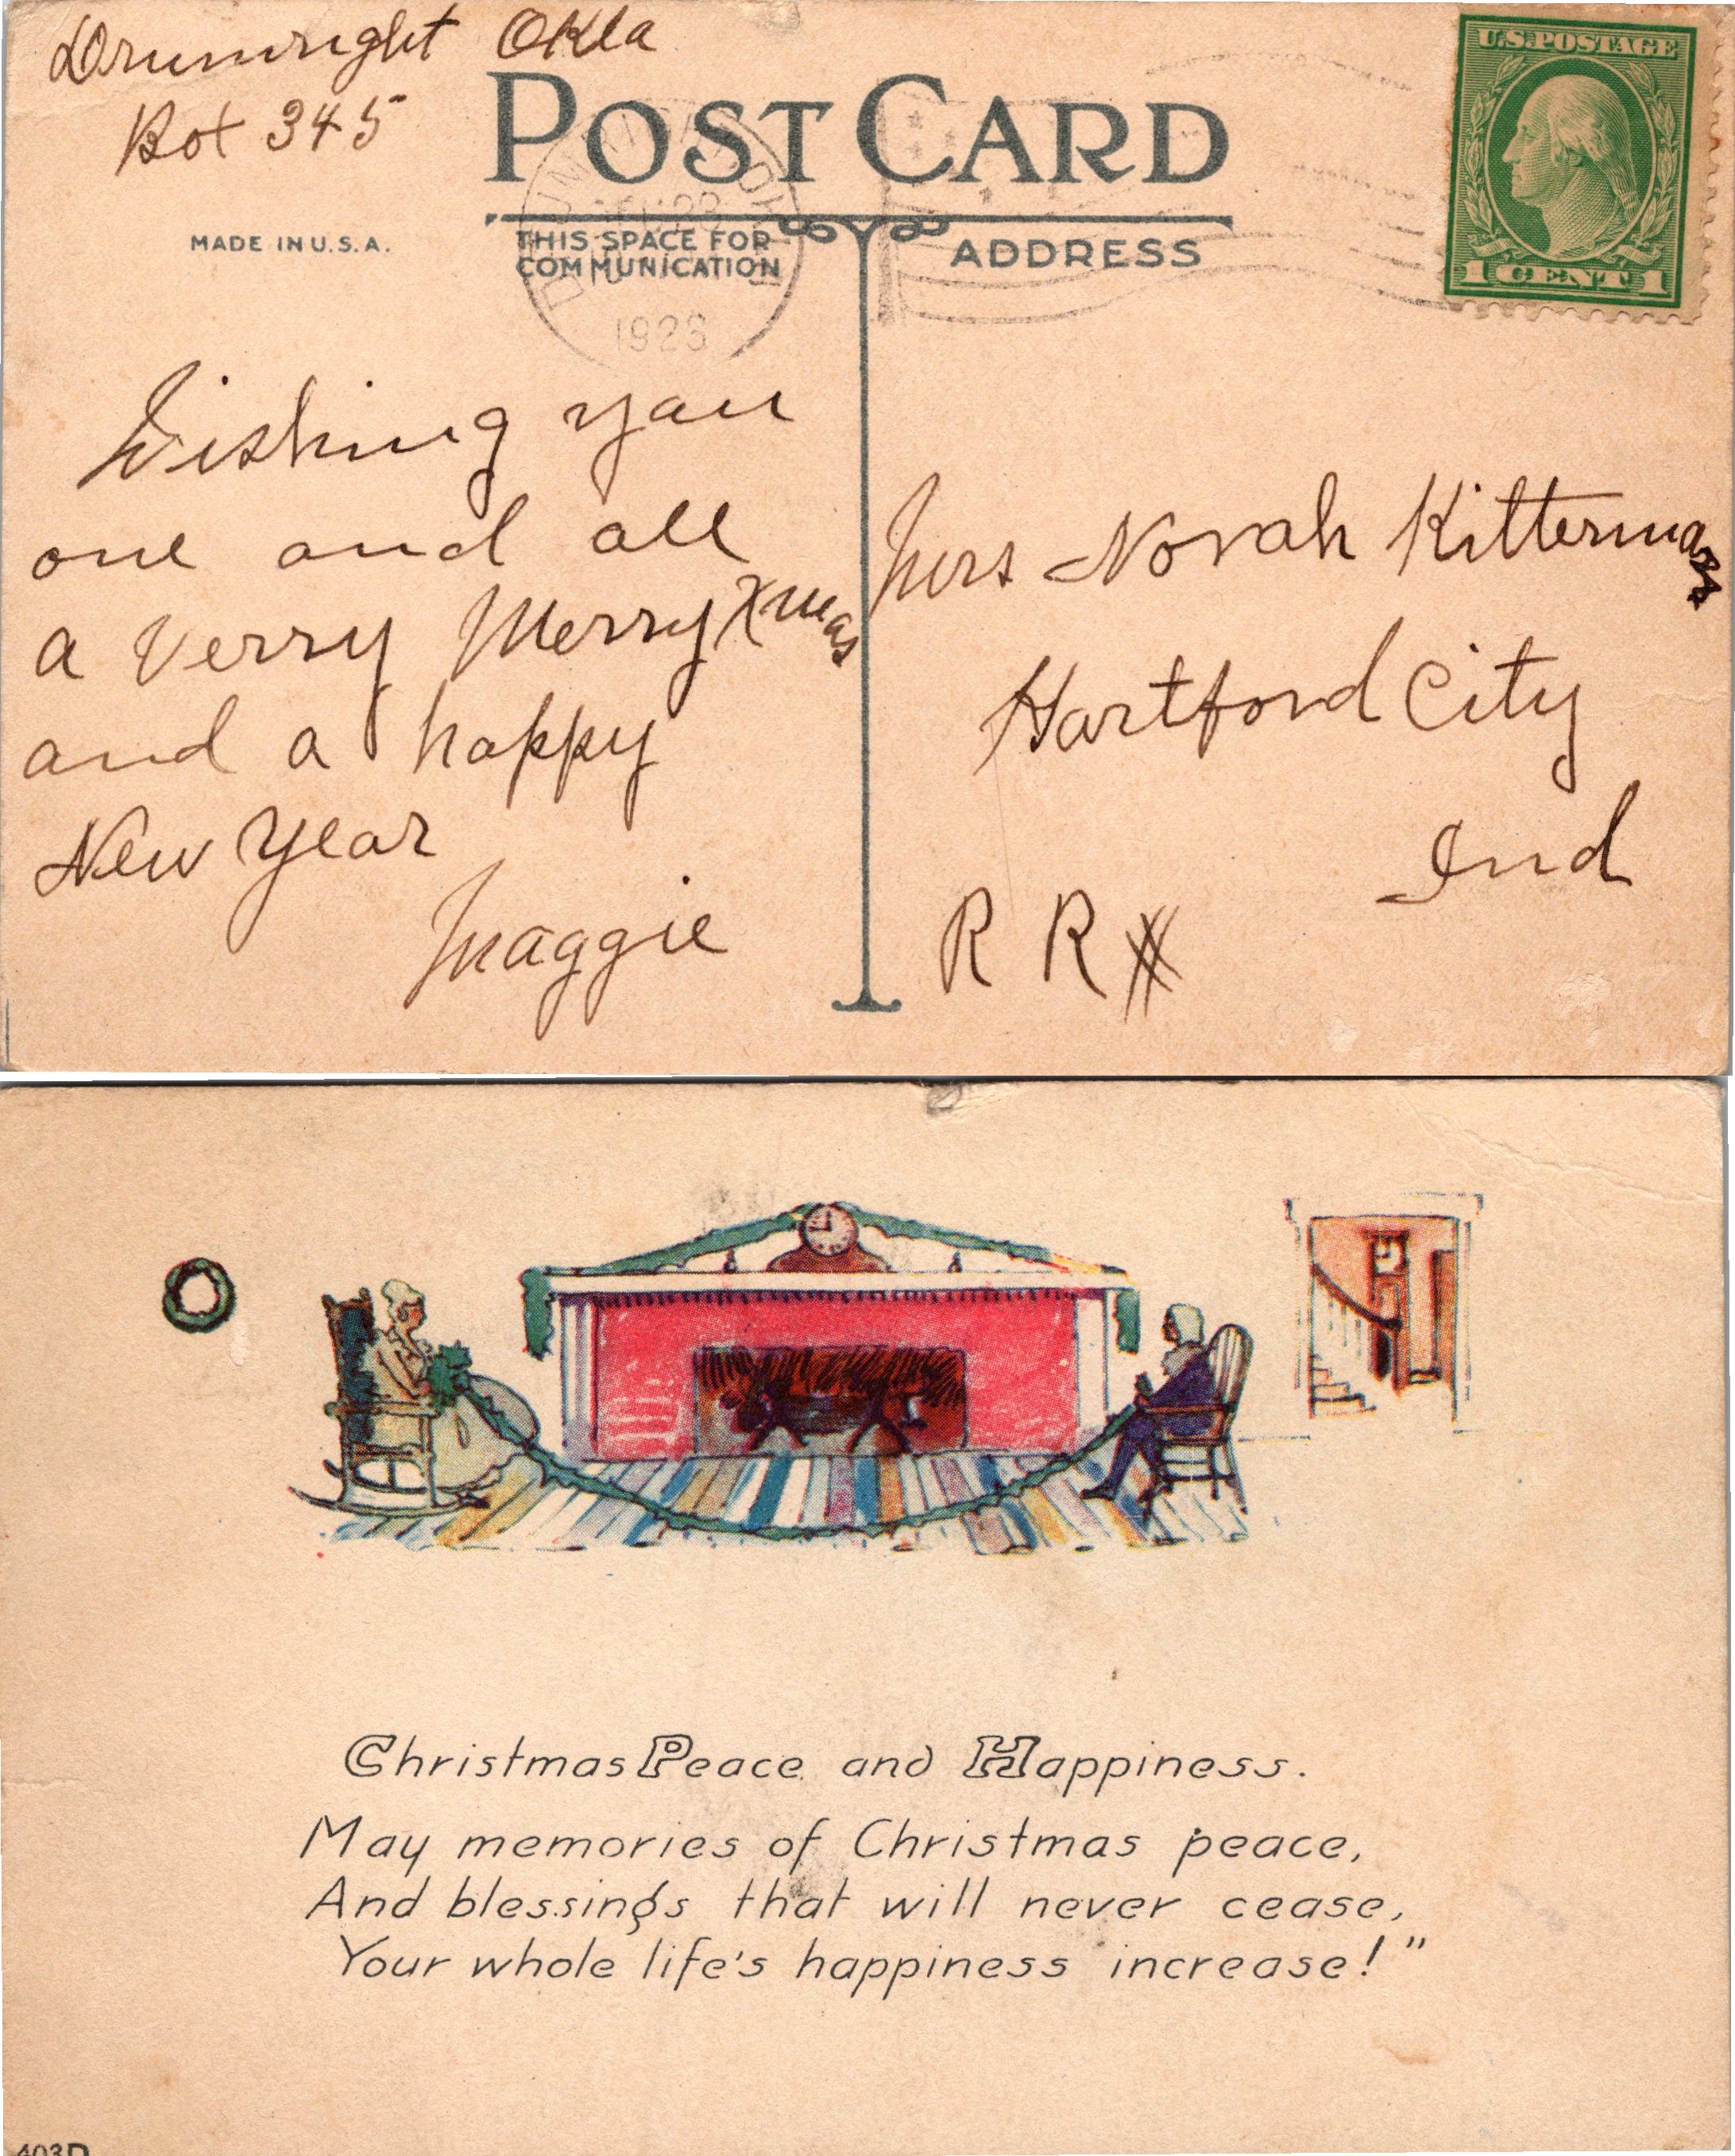 Drumright Okla
Box 345
POST CARD
U.S. POSTAGE
1 CENT 1
MADE IN U.S.A.
THIS SPACE FOR
COMMUNICATION
ADDRESS
Wishing you
one and all
a Verry Merry Xmas
and a happy
New Year
Maggie
Mrs Norah Kitterman
Hartford City
Ind
R R
Christmas Peace and Happiness.
May memories of Christmas peace,
And blessings that will never cease,
Your whole life's happiness increase!"
403D